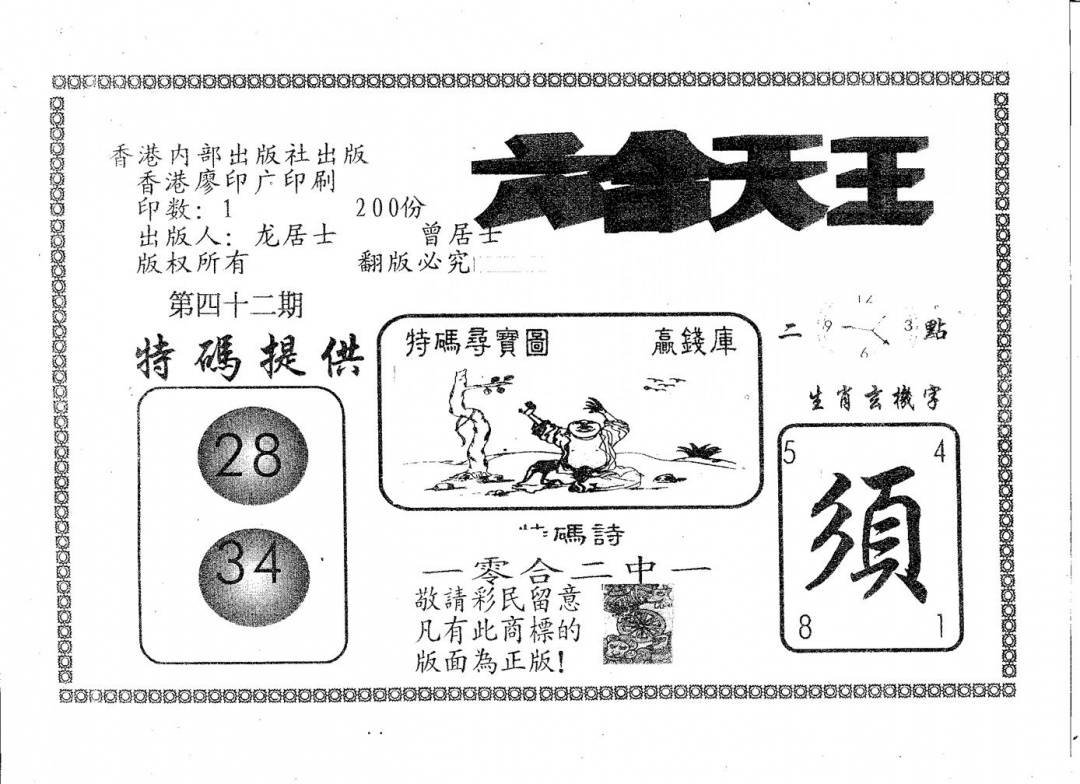 六合天王
香港内部出版社出版
香港廖印广印刷
印数：1 200份
出版人：龙居士 曾居士
版权所有 翻版必究
第四十二期
特碼提供
28
34
特碼尋寶圖 贏錢庫
碼詩
一零合二中一
敬請彩民留意
凡有此商標的
版面為正版！
二 點
12
9 3
6
生肖玄機字
5 4
須
8 1